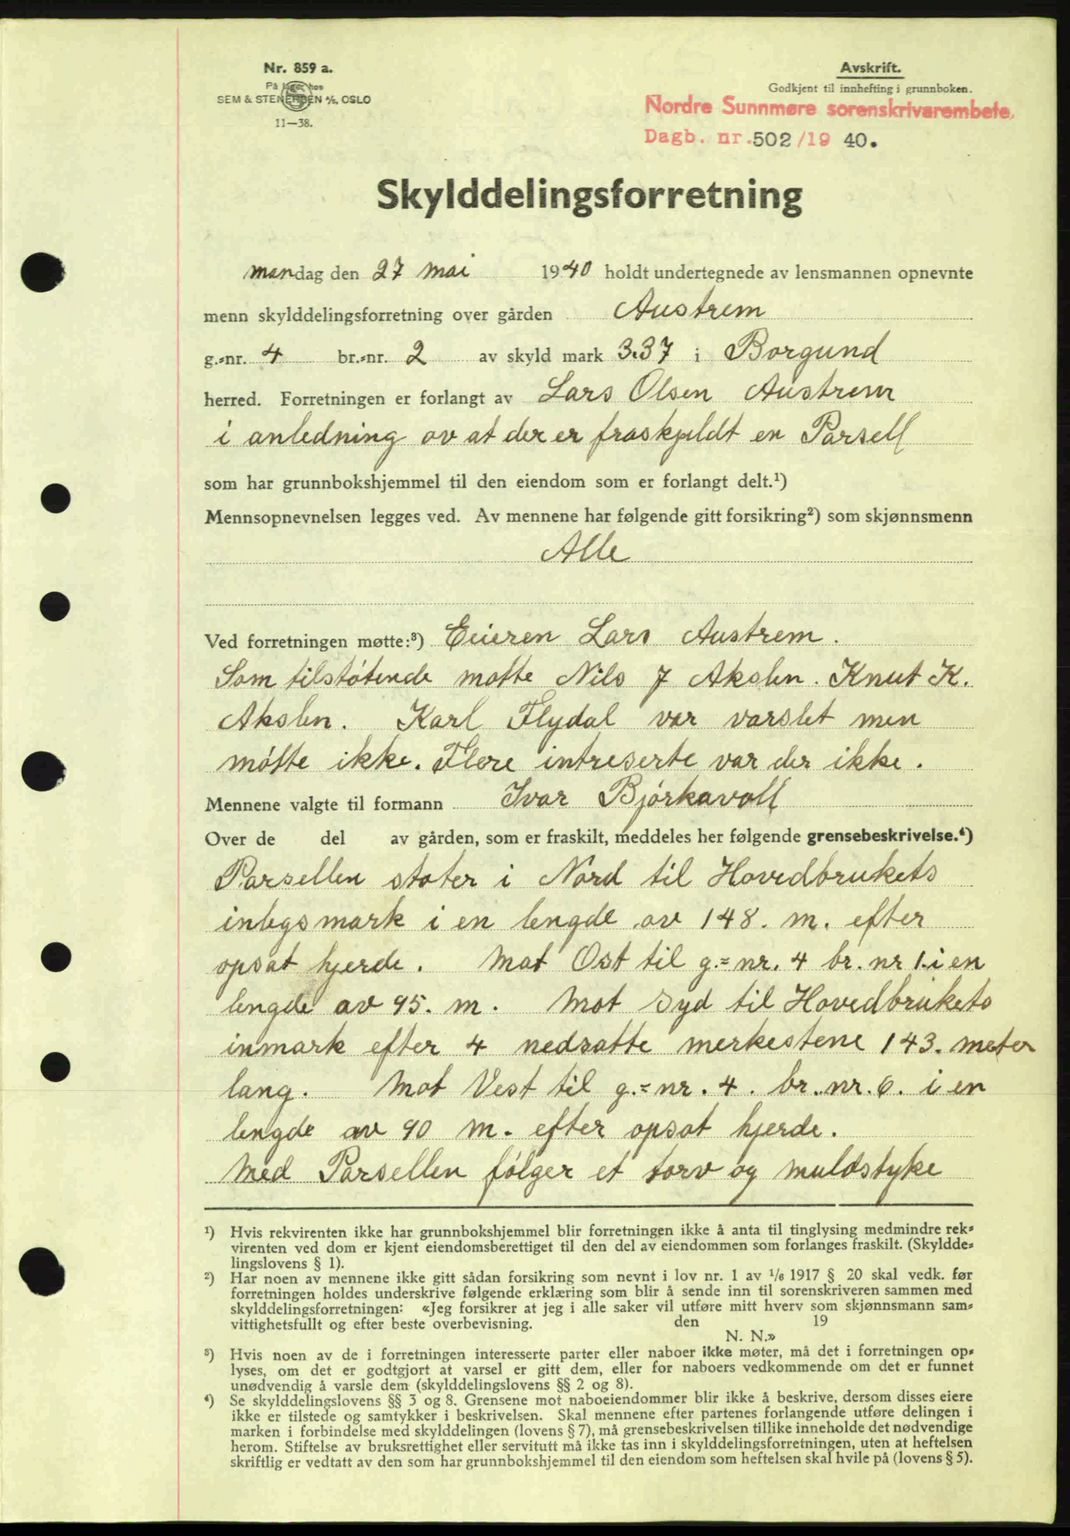 Nr. 859 a.
På lager hos
SEM & STENERSEN A/S, OSLO
11—38.
Avskrift.
Godkjent til innhefting i grunnboken.
Nordre Sunnmøre sorenskrivarembete.
Dagb. nr. 502/19 40.
Skylddelingsforretning
mandag den 27 mai 1940 holdt undertegnede av lensmannen opnevnte
menn skylddelingsforretning over gården Austrem
g.-nr. 4 br.-nr. 2 av skyld mark 3.37 i Borgund
herred. Forretningen er forlangt av Lars Olsen Austrem
i anledning av at der er fraskyldt en Parsell
som har grunnbokshjemmel til den eiendom som er forlangt delt.¹)
Mennsopnevnelsen legges ved. Av mennene har følgende gitt forsikring²) som skjønnsmenn
Alle
Ved forretningen møtte:³) Eieren Lars Austrem.
Som tilstøtende møtte Nils J Akslen. Knut K.
Akslen. Karl Flydal var varslet men
møtte ikke. Flere intreserte var der ikke.
Mennene valgte til formann Ivar Bjørkavoll
Over de del av gården, som er fraskilt, meddeles her følgende grensebeskrivelse.⁴)
Parsellen støter i Nord til Hovedbrukets
inbgsmark i en lengde av 148. m. efter
opsat hjerde. Mot Ost til g.=nr. 4 br. nr 1. i en
lengde av 95. m. Mot Syd til Hovedbrukets
inmark efter 4 nedsatte merkestene 143. meter
lang. Mot Vest til g.=nr. 4. br. nr. 6. i en
lengde av 90 m. efter opsat hjerde.
Med Parsellen følger et torv og muldstyke
¹) Hvis rekvirenten ikke har grunnbokshjemmel blir forretningen ikke å anta til tinglysing medmindre rek-
virenten ved dom er kjent eiendomsberettiget til den del av eiendommen som forlanges fraskilt. (Skyldde-
lingslovens § 1).
²) Har noen av mennene ikke gitt sådan forsikring som nevnt i lov nr. 1 av 1/6 1917 § 20 skal vedk. før
forretningen holdes underskrive følgende erklæring som blir å sende inn til sorenskriveren sammen med
skylddelingsforretningen: «Jeg forsikrer at jeg i alle saker vil utføre mitt hverv som skjønnsmann sam-
vittighetsfullt og efter beste overbevisning. den 19
N. N.»
³) Hvis noen av de i forretningen interesserte parter eller naboer ikke møter, må det i forretningen op-
lyses, om det er godtgjort at varsel er gitt dem, eller for naboers vedkommende om det er funnet
unødvendig å varsle dem (skylddelingslovens §§ 2 og 8).
⁴) Se skylddelingslovens §§ 3 og 8. Grensene mot naboeiendommer blir ikke å beskrive, dersom disses eiere
ikke er tilstede og samtykker i beskrivelsen. Skal mennene efter partenes forlangende utføre delingen i
marken i forbindelse med skylddelingen (lovens § 7), må grensebeskrivelsen tillike inneholde det nødvendige
herom. Stiftelse av bruksrettighet eller servitutt må ikke tas inn i skylddelingsforretningen, uten at heftelsen
skriftlig er vedtatt av den som har grunnbokshjemmel til den eiendom som heftelsen skal hvile på (lovens § 5).